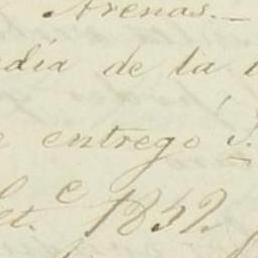 Arenas.
día de la
entregó
1852